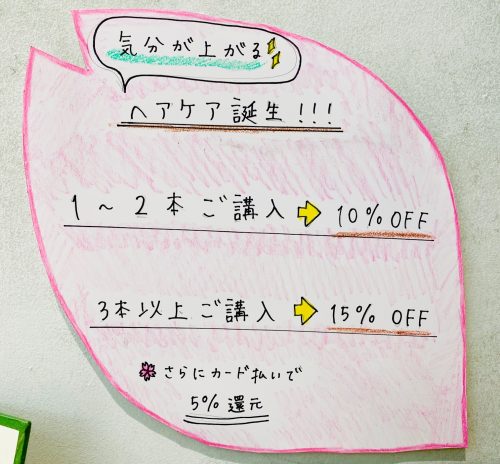 気分が上がる
ヘアケア誕生!!!
1~2本ご購入➡10%OFF
3本以上ご購入➡15%OFF
さらにカード払いで
5%還元